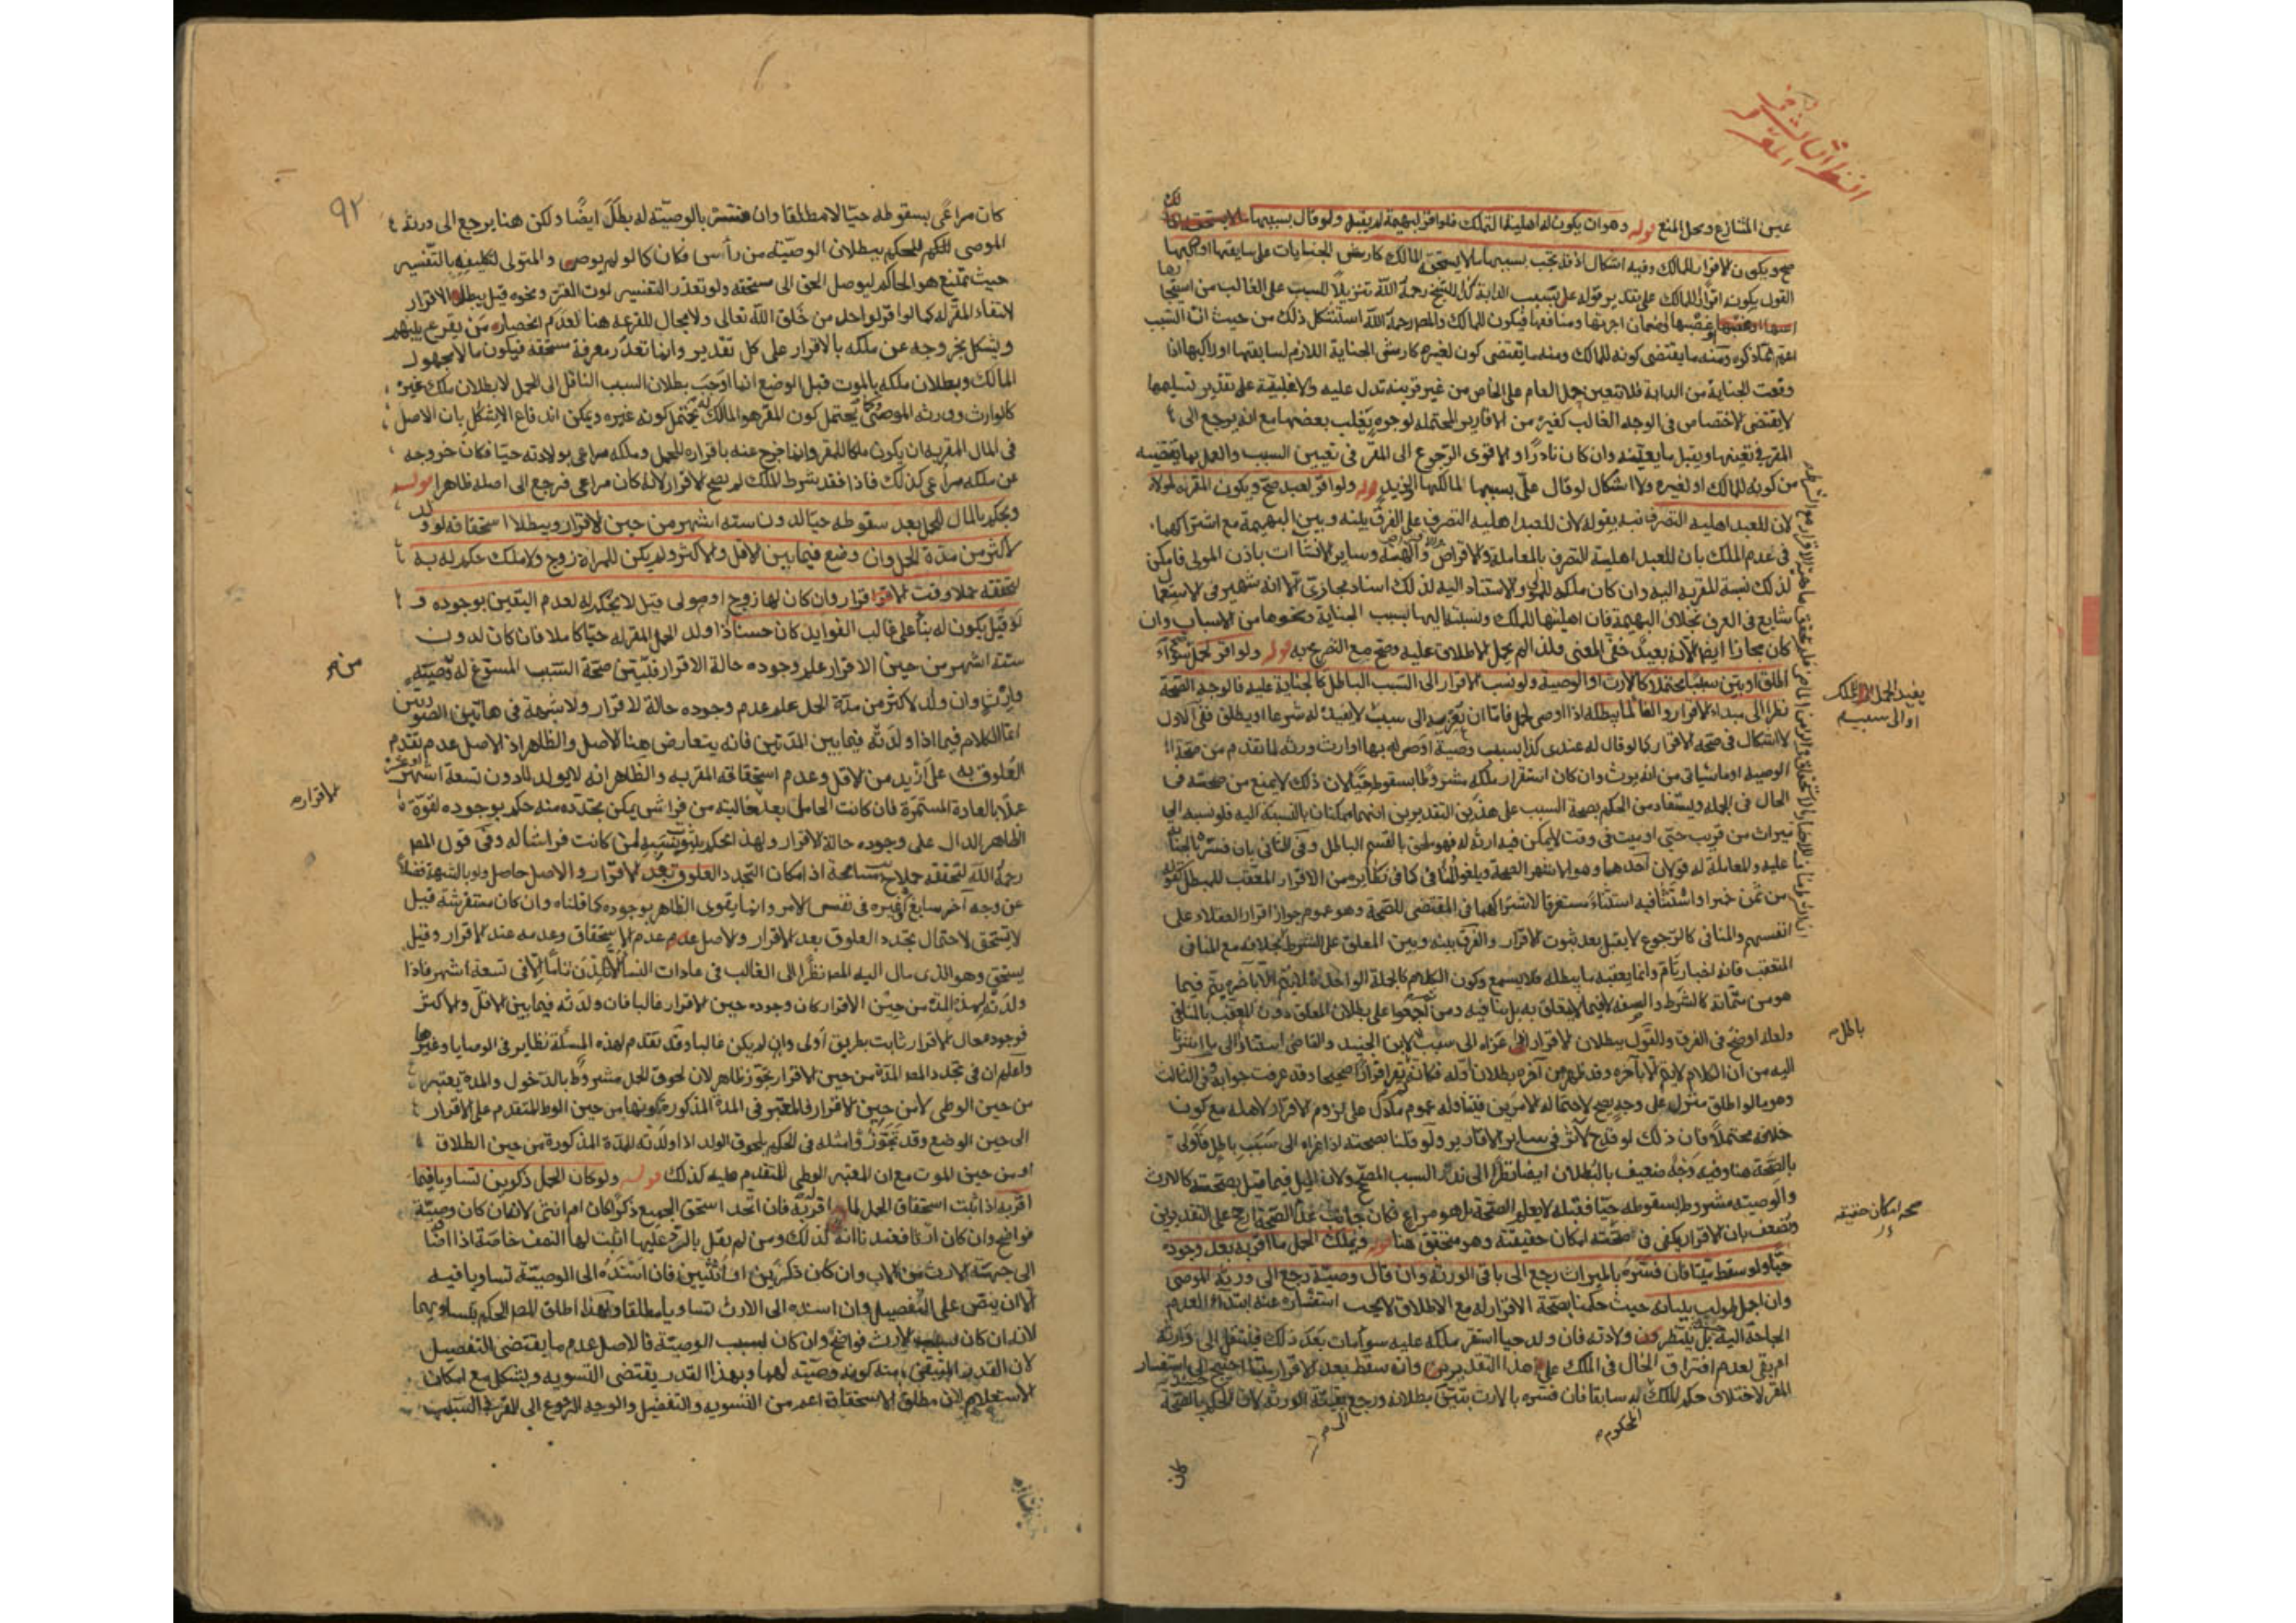 النظر الثاني في المقر له
عين المتنازع ومحل المنع قوله وهو ان يكون له اهلية التملك فلو اقر لبهيمة لم يقبل ولو قال بسببها
صح ويكون الاقرار للمالك وفيه اشكال اذ قد يجب بسببها ما لا يستحقه المالك كارش الجنايات على سايقها او راكبها
القول بكونه اقرارا للمالك على تقدير قوله على بسبب الدابة للشيخ رحمه الله تنزيلا للسبب على الغالب من
وضمان اجرتها ومنافعها فيكون للمالك والمص رحمه الله استشكل ذلك من حيث ان السبب
اعم مما ذكره ومنه ما يقتضى كونه للمالك ومنه ما يقتضى كون لغيره كارش الجناية اللازم لسايقها او راكبها اذا
وقعت الجناية من الدابة فلا يتعين حمل العام على الخاص من غير قرينة تدل عليه والاغلبية على تقدير تسليمها
لا يقتضى الاختصاص فى الوجه الغالب كغيره من الاقارير المحتملة لوجوه يغلب بعضها مع انه يرجع الى
المقر فى تعيينها ويقبل ما يعينه وان كان نادرا والاقوى الرجوع الى المقر فى تعيين السبب والعمل بما يقتضيه
من كونه للمالك او لغيره ولا اشكال لو قال على بسببها لمالكها او لزيد قوله ولو اقر لعبد صح ويكون المقر به لمولاه
لان للعبد اهلية التصرف نبه بقوله لان للعبد اهلية التصرف على الفرق بينه وبين البهيمة مع اشتراكهما
فى عدم الملك بان للعبد اهلية التصرف بالمعاملة والاقراض والهبة وساير الانشاءات باذن المولى فامكن
لذلك نسبة المقر به اليه وان كان ملكه للمولى والاستناد اليه لذلك اسناد مجازى الا انه شهير فى الاستعما
شايع فى العرف بخلاف البهيمة فان اهليتها للملك ونسبته اليها بسبب الجناية ونحوها من الاسباب وان
كان مجازا ايضا الا انه بعيد خفى المعنى فلذا لم يحمل الاطلاق عليه وصح مع التصريح به قوله ولو اقر لحمل سواء
اطلق او بين سببا محتملا كالارث او الوصية ولو نسب الاقرار الى السبب الباطل كالجناية عليه فالوجه الصحة
نظرا الى مبداء الاقرار والغاء لما يبطله اذا اوصى لحمل فاما ان يعزيه الى سبب لا يفيد له شرعا او يطلق ففى الاول
لا اشكال فى صحة الاقرار كما لو قال له عندى كذا بسبب وصية اوصى له بها او ارث ورثه لما تقدم من صحة
الوصية او ما سياتى من انه يورث وان كان استقرار ملكه مشروطا بسقوطه حيا لان ذلك لا يمنع من صحته فى
الحال فى الجملة ويستفاد من الحكم بصحة السبب على هذين التقديرين انهما ممكنان بالنسبة اليه فلو نسبه الى
ميراث من قريب حتى او ميت فى وقت لا يمكن فيه ارثه له فهو ملحق بالقسم الباطل وفى الثانى بان فسره بالجناية
عليه والمعاملة له قولان احدهما وهو الاشهر الصحة ويلغو المنافى كما فى نظايره من الاقرار المعقب للمبطل كقوله
من ثمن خمر او استثنا فيه استثناء مستغرقا لاشتراكهما فى المقتضى للصحة وهو عموم جواز اقرار العقلاء على
انفسهم والمنافى كالرجوع لا يقبل بعد ثبوت الاقرار والفرق بينه وبين المعلق على الشرط بخلافه مع المنافى
المتعقب فانه اخبار تام وانما يعقبه ما يبطله فلا يسمع وكون الكلام كالجملة الواحدة لا يتم الا باخره يتم فيما
هو من متماته كالشرط والصفة لا فيما لا يتعلق به بل ينافيه ومن ثم اجمعوا على بطلان المعلق دون المعقب بالمنافى
ولعله اوضح فى الفرق والقول ببطلان الاقرار ان عزاه الى سبب لابن الجنيد والقاضى استنادا الى ما اشرنا
اليه من ان الكلام لا يتم الا بآخره وقد ظهر من آخره بطلان اوله فكان لم يقر اقرارا صحيحا وقد عرفت جوابه وفى الثالث
وهو ما لو اطلق منزل على وجه يصح لاحتماله الامرين فيتناوله عموم ما دل على لزوم الاقرار لاهله مع كون
خلافه محتملا فان ذلك لو قدح لاثر فى ساير الاقارير ولو قلنا بصحته اذا عزاه الى سبب باطل فاولى
بالصحة هنا وفيه وجه ضعيف بالبطلان ايضا نظرا الى السبب المصحح ولان الحمل فيما قيل بصحته كالارث
والوصية مشروط بسقوطه حيا فقبله لا يعلم الصحة بل هو مراع فكان جانب عدم الصحة ارجح على التقديرين
ويضعف بان الاقرار يكفى فى صحته امكان حقيقته وهو متحقق هنا قوله ويملك الحمل ما اقر به بعد وجوده
حيا ولو سقط ميتا فان فسره بالميراث رجع الى باقى الورثة وان قال وصية رجع الى ورثة الموصى
وان اجمل طولب ببيانه حيث حكمنا بصحة الاقرار له مع الاطلاق لا يجب استفساره عنه ابتداء لعدم
الحاجة اليه بل ينتظر ولادته فان ولد حيا استقر ملكه عليه سواء مات بعد ذلك فينتقل الى وارثه
ام بقى لعدم افتراق الحال فى الملك على هذا التقديرين وان سقط بعد الاقرار ميتا احتيج الى استفسار
المقر لاختلاف حكم الملك له سابقا فان فسره بالارث تبين بطلانه ورجع بقية الورثة لان الحكم بالصحة
باطل
صحة امكان حقيقته
المحكوم
كان
٩٢
كان مراعى بسقوطه حيا لا مطلقا وان فسر بالوصية له بطل ايضا ولكن هنا يرجع الى ورثة
الموصى للحكم ببطلان الوصية من رأس فكان كما لو لم يوص والمتولى لتكليفه بالتفسير
حيث يمتنع هو الحاكم ليوصل الحق الى مستحقه ولو تعذر التفسير لموت المقر ونحوه قيل بطل الاقرار
لانتفاء المقر له كما لو اقر لواحد من خلق الله تعالى ولا مجال للقرعة هنا لعدم انحصار من يقرع بينهم
ويشكل بخروجه عن ملكه بالاقرار على كل تقدير وانما تعذر معرفة مستحقه فيكون مالا مجهول
المالك وبطلان ملكه بالموت قبل الوضع انما اوجب بطلان السبب الناقل الى الحمل لا بطلان ملك غيره
كالوارث وورثة الموصى وكما يحتمل كون المقر هو المالك يحتمل كونه غيره ويمكن اندفاع الاشكال بان الاصل
فى المال المقر به ان يكون ملكا للمقر وانما خرج عنه باقراره للحمل وملكه مراعى بولادته حيا فكان خروجه
عن ملكه مراعى كذلك فاذا فقد شرط الملك لم يصح الاقرار لانه كان مراعى فرجع الى اصله ظاهرا قوله
ويحكم بالمال للحمل بعد سقوطه حيا لدون ستة اشهر من حين الاقرار ويبطل استحقاقه لو ولد
لاكثر من مدة الحمل وان وضع فيما بين الاقل والاكثر ولم يكن للمراة زوج ولا ملك حكم له به
لتحققه حملا وقت الاقرار وان كان لها زوج او مولى قيل لا يحكم له لعدم اليقين بوجوده و
لو قيل يكون له بناء على غالب الفوايد كان حسنا اذا ولد الحمل المقر له حيا كاملا فان كان لدون
ستة اشهر من حين الاقرار علم وجوده حالة الاقرار فتبين صحة السبب المسوغ له من وصية
وارث وان ولد لاكثر من مدة الحمل علم عدم وجوده حالة الاقرار ولا شبهة فى هاتين الصورتين
انما الكلام فيما اذا ولدته فيما بين المدتين فانه يتعارض هنا الاصل والظاهر اذ الاصل عدم تقدم
العلوق به على ازيد من الاقل وعدم استحقاقه المقر به والظاهر انه لا يولد لما دون تسعة اشهر
عملا بالعادة المستمرة فان كانت الحامل بعد خالية من فراش يمكن تجدده منه حكم بوجوده لقوة
الظاهر الدال على وجوده حالة الاقرار ولهذا يحكم بثبوت نسبه لمن كانت فراشا له وفى قول المص
رحمه الله لتحققه حملا مسامحة اذ امكان التجدد العلوق بعد الاقرار والاصل حاصل ولو بالشبهة فضلا
عن وجه آخر سايغ او غيره فى نفس الامر وانما يقوى الظاهر بوجوده كما قلناه وان كان مستفرشة قيل
لا يستحق لاحتمال تجدد العلوق بعد الاقرار والاصل عدم الاستحقاق وعدمه عند الاقرار وقيل
يستحق وهو الذى مال اليه المص نظرا الى الغالب فى عادات النساء الا يلدن تاما الا فى تسعة اشهر فاذا
ولدته لهذه المدة من حين الاقرار كان وجوده حين الاقرار غالبا فان ولدته فيما بين الاقل والاكثر
فوجوده حال الاقرار ثابت بطريق اولى وان لم يكن غالبا وقد تقدم لهذه المسئلة نظاير فى الوصايا وغيرها
واعلم ان فى تجدد المص المدة من حين الاقرار تجوز ظاهر لان لحوق الحمل مشروط بالدخول والمدة يعتبر
من حين الوطى لا من حين الاقرار فالمعتبر فى المدة المذكورة كونها من حين الوطء المتقدم على الاقرار
الى حين الوضع وقد تجوز وامثله فى الحكم بلحوق الولد اذا ولدته للمدة المذكورة من حين الطلاق
او من حين الموت مع ان المعتبر الوطى المتقدم عليه كذلك قوله ولو كان الحمل ذكرين تساويا فيما
اقر به اذا ثبت استحقاق الحمل لما اقر له به فان اتحد استحق الجميع ذكرا كان ام انثى لانه ان كان وصية
فواضح وان كان ارثا فعندنا انه كذلك ومن لم يقل بالرد عليها اثبت لها النصف خاصة اذا اضا
الى جهة الارث من الاب وان كان ذكرين او انثيين فان اسنده الى الوصية تساويا فيه
الا ان ينص على التفصيل وان اسنده الى الارث تساويا مطلقا ولهذا اطلق المص الحكم بتساويهما
لانه ان كان بسبب الارث فواضح وان كان بسبب الوصية فالاصل عدم ما يقتضى التفضيل
لان القدر المتيقن منه كونه وصية لهما وبهذا القدر يقتضى التسوية ويشكل مع امكان
الاستعلام لان مطلق الاستحقاق اعم من التسوية والتفضيل والوجه الرجوع الى المقر فى السبب
من
الاقرار